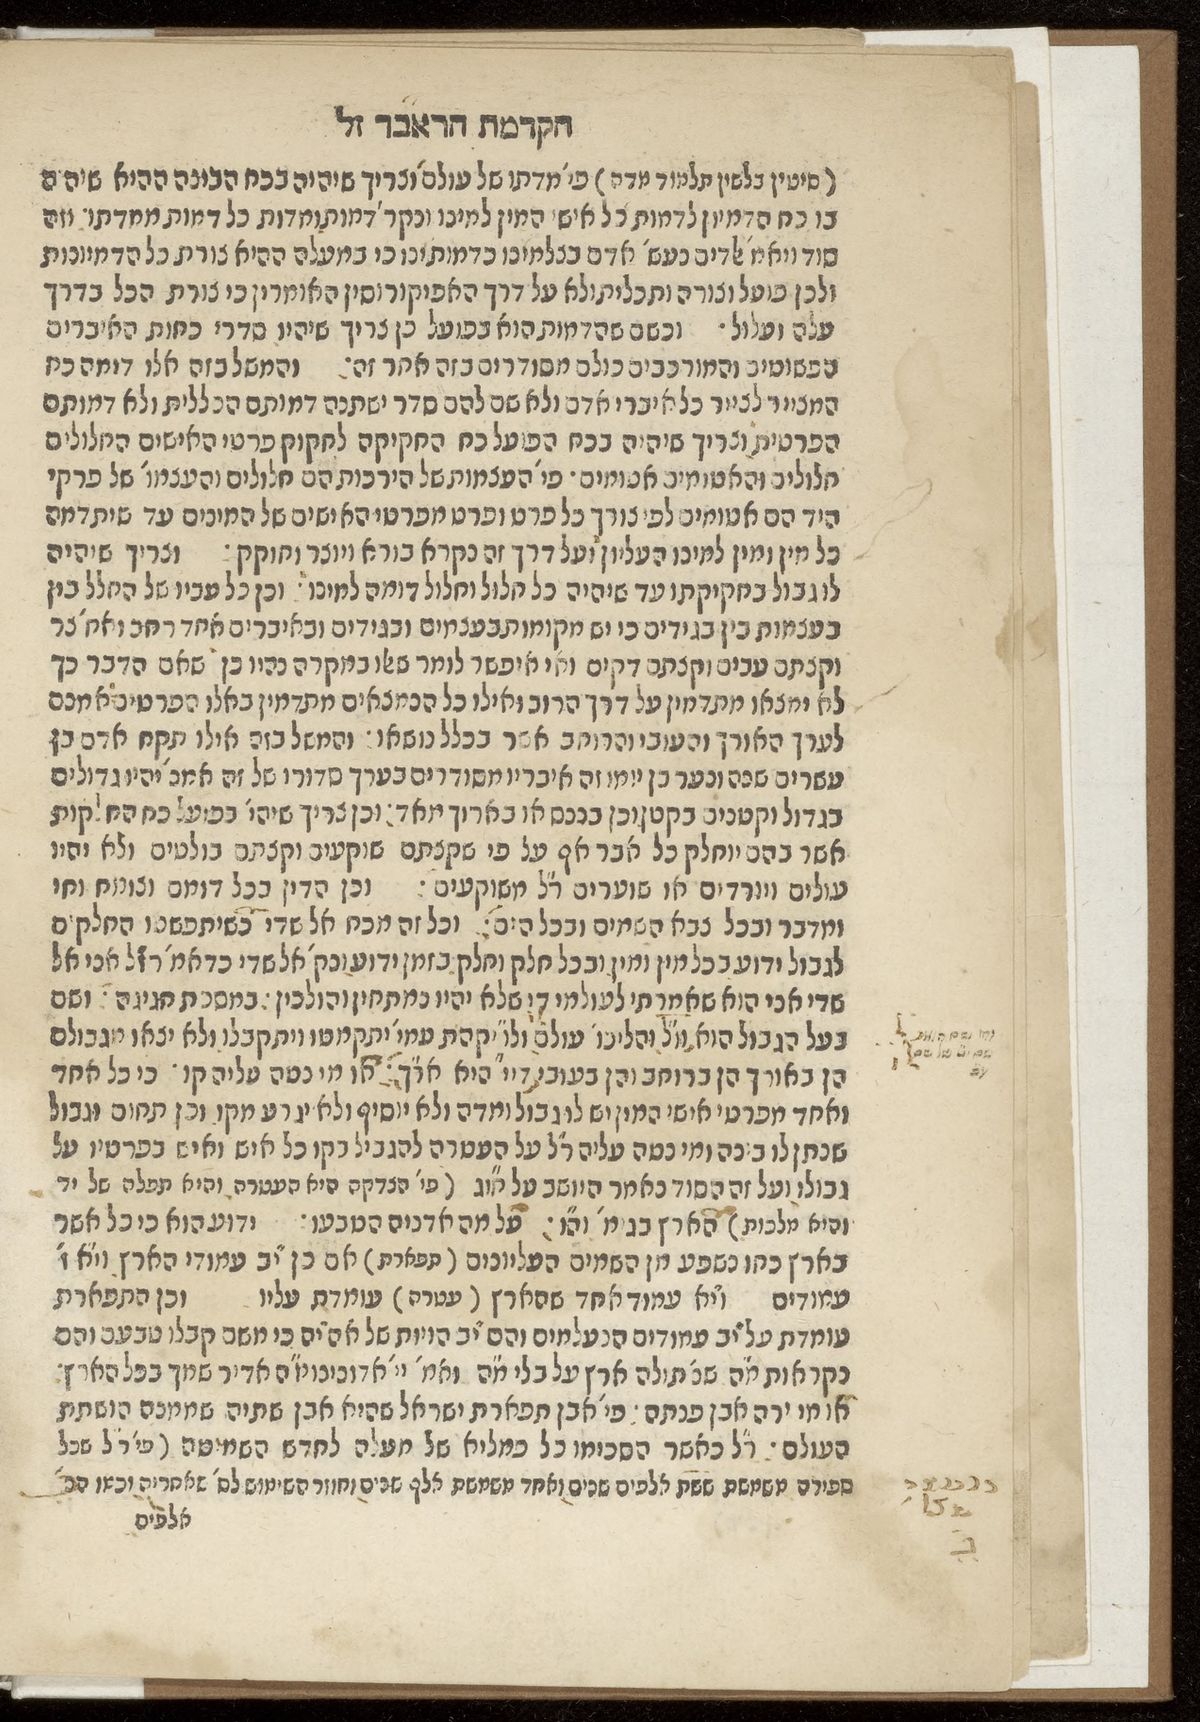 הקדמת הראבד זל
(סיטין בלשין תלמוד מדה) פי׳ מדתו של עולם וצריך שיהיה בכח הבונה ההיא שיהיה
בו כח הדמיון לדמות כל אישי המין למינו ונקר׳ דמות ומדות כל דמות ממדתו׳ וזה
סוד ויאמ׳ אדים נעש׳ אדם בצלמינו כדמותינו כי במעלה ההיא צורת כל הדמיונות
ולכן פועל וצורה ותכלית ולא על דרך האפיקורוסין האומרין כי צורת הכל בדרך
עלה ועלול׳ וכשם שהדמות הוא בפועל כן צריך שיהיו סדרי כחות האיברים
הפשוטים והמורכבים כולם מסודרים בזה אחר זה׃ והמשל בזה אלו דומה כח
המצייר לצייר כל איברי אדם ולא שם להם סדר ישתנה דמותם הכללית ולא דמותם
הפרטית וצריך שיהיה בכח הפועל כח החקיקה לחקוק פרטי האישים החלולים
חלולים והאטומים אטומים׃ פי׳ העצמות של הירכות הם חלולים והעצמו׳ של פרקי
היד הם אטומים לפי צורך כל פרט ופרט מפרטי האישים של המינים עד שיתדמה
כל מין ומין למינו העליון ועל דרך זה נקרא בורא ויוצר וחוקק׃ וצריך שיהיה
לו גבול בחקיקתו עד שיהיה כל חלול וחלול דומה למינו׃ וכן כל עביו של החלל בין
בעצמות בין בגידים כי יש מקומות בעצמים ובגידים ובאיברים אחד רחב ואח׳ צר
וקצתם עבים וקצתם דקים ואי איפשר לומר שאו במקרה נהיו כן שאם הדבר כך
לא ימצאו מתדמין על דרך הרוב ואילו כל הנמצאים מתדמין באלו הפרטים אמנם
לערך האורך והעובי והרוחב אשר בכלל נושאו׃ והמשל בזה אילו תקח אדם בן
עשרים שנה ונער בן יומו זה איבריו מסודרים בערך סדורו של זה אמנ׳ יהיו גדולים
בגדול וקטנים בקטן וכן בננס או בארוך מאד׃ וכן צריך שיהי׳ בפועל כח החלקות
אשר בהם יוחלק כל אבר אף על פי שקצתם שוקעים וקצתם בולטים ולא יהיו
עולים ויורדים או שוערים ר״ל משוקעים׃ וכן הדין בכל דומם וצומח וחי
ומדבר ובכל צבא השמים ובכל הים׃ וכל זה מכח אל שדי כשיתפשטו החלקים
לגבול ידוע בכל מין ומין ובכל חלק וחלק בזמן ידוע ונק׳ אל שדי כדאמ׳ רז״ל אני אל
שדי אני הוא שאמרתי לעולמי די שלא יהיו נמתחין והולכין׃ במסכת חגיגה׃ ושם
בעל הגבול הוא ו״ל והליכו׳ עולם ולו׳ יקהת עמי׳ יתקמטו ויתקבלו ולא יצאו מגבולם
הן באורך הן ברוחב והן בעובי דיי״ היא א״רך׃ או מי נטה עליה קו׃ כי כל אחד
ואחד מפרטי אישי המין יש לו גבול ומדה ולא יוסיף ולא יגרע מקו וכן תחום וגבול
שנתן לו בינה ומי נטה עליה ר״ל על העטרה להגביל בקו כל איש ואיש בפרטיו על
גבולו ועל זה הסוד נאמר היושב על חוג (פי׳ הצדקה היא העטרה והיא תפלה של יד
והיא מלכות) הארץ בגימ׳ וה״ו׃ על מה אדניה הטבעו׃ ידוע הוא כי כל אשר
בארץ כחו נשפע מן השמים העליונים (תפארת) אם כן י״ב עמודי הארץ וי״א ז׳
עמודים וי״א עמוד אחד שהארץ (עטרה) עומדת עליו וכן התפארת
עומדת על י״ב עמודים הנעלמים והם י״ב הויות של אה״יה כי משם קבלו טבעם והם
נקראות מ״ה שנ׳ תולה ארץ על בלי מ״ה ואמ׳ יי׳ אדונינו מ״ה אדיר שמך בכל הארץ׃
או מי ירה אבן פנתה׃ פי׳ אבן תפארת ישראל שהיא אבן שתיה שממנה הושתת
העולם׃ ר״ל כאשר הסכימו כל פמליא של מעלה לחדש השמיטה (פי׳ ר״ל שכל
ספירה משמשת ששת אלפים שנים ואחד משמשת אלף שנים וחוזר השימוש לס׳ שאחריה וכשו הב׳
אלפים